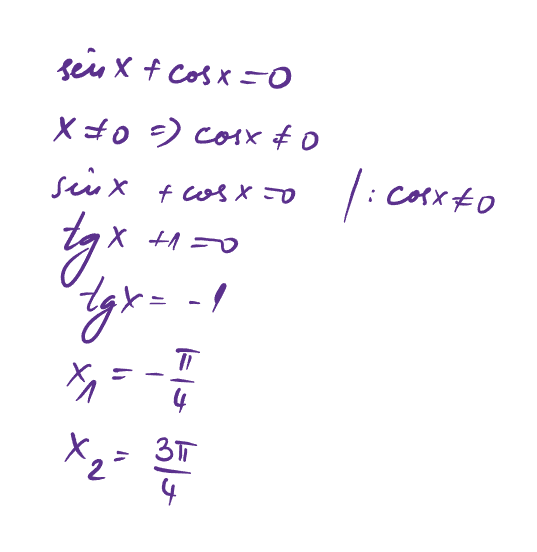 sin x + cos x = 0
x ≠ 0 => cos x ≠ 0
sin x + cos x = 0 / : cos x ≠ 0
tg x + 1 = 0
tg x = -1
x₁ = -π/4
x₂ = 3π/4